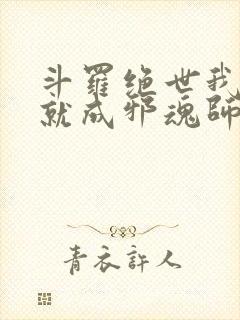 斗羅絶世我
就成邪魂師
青衣許人